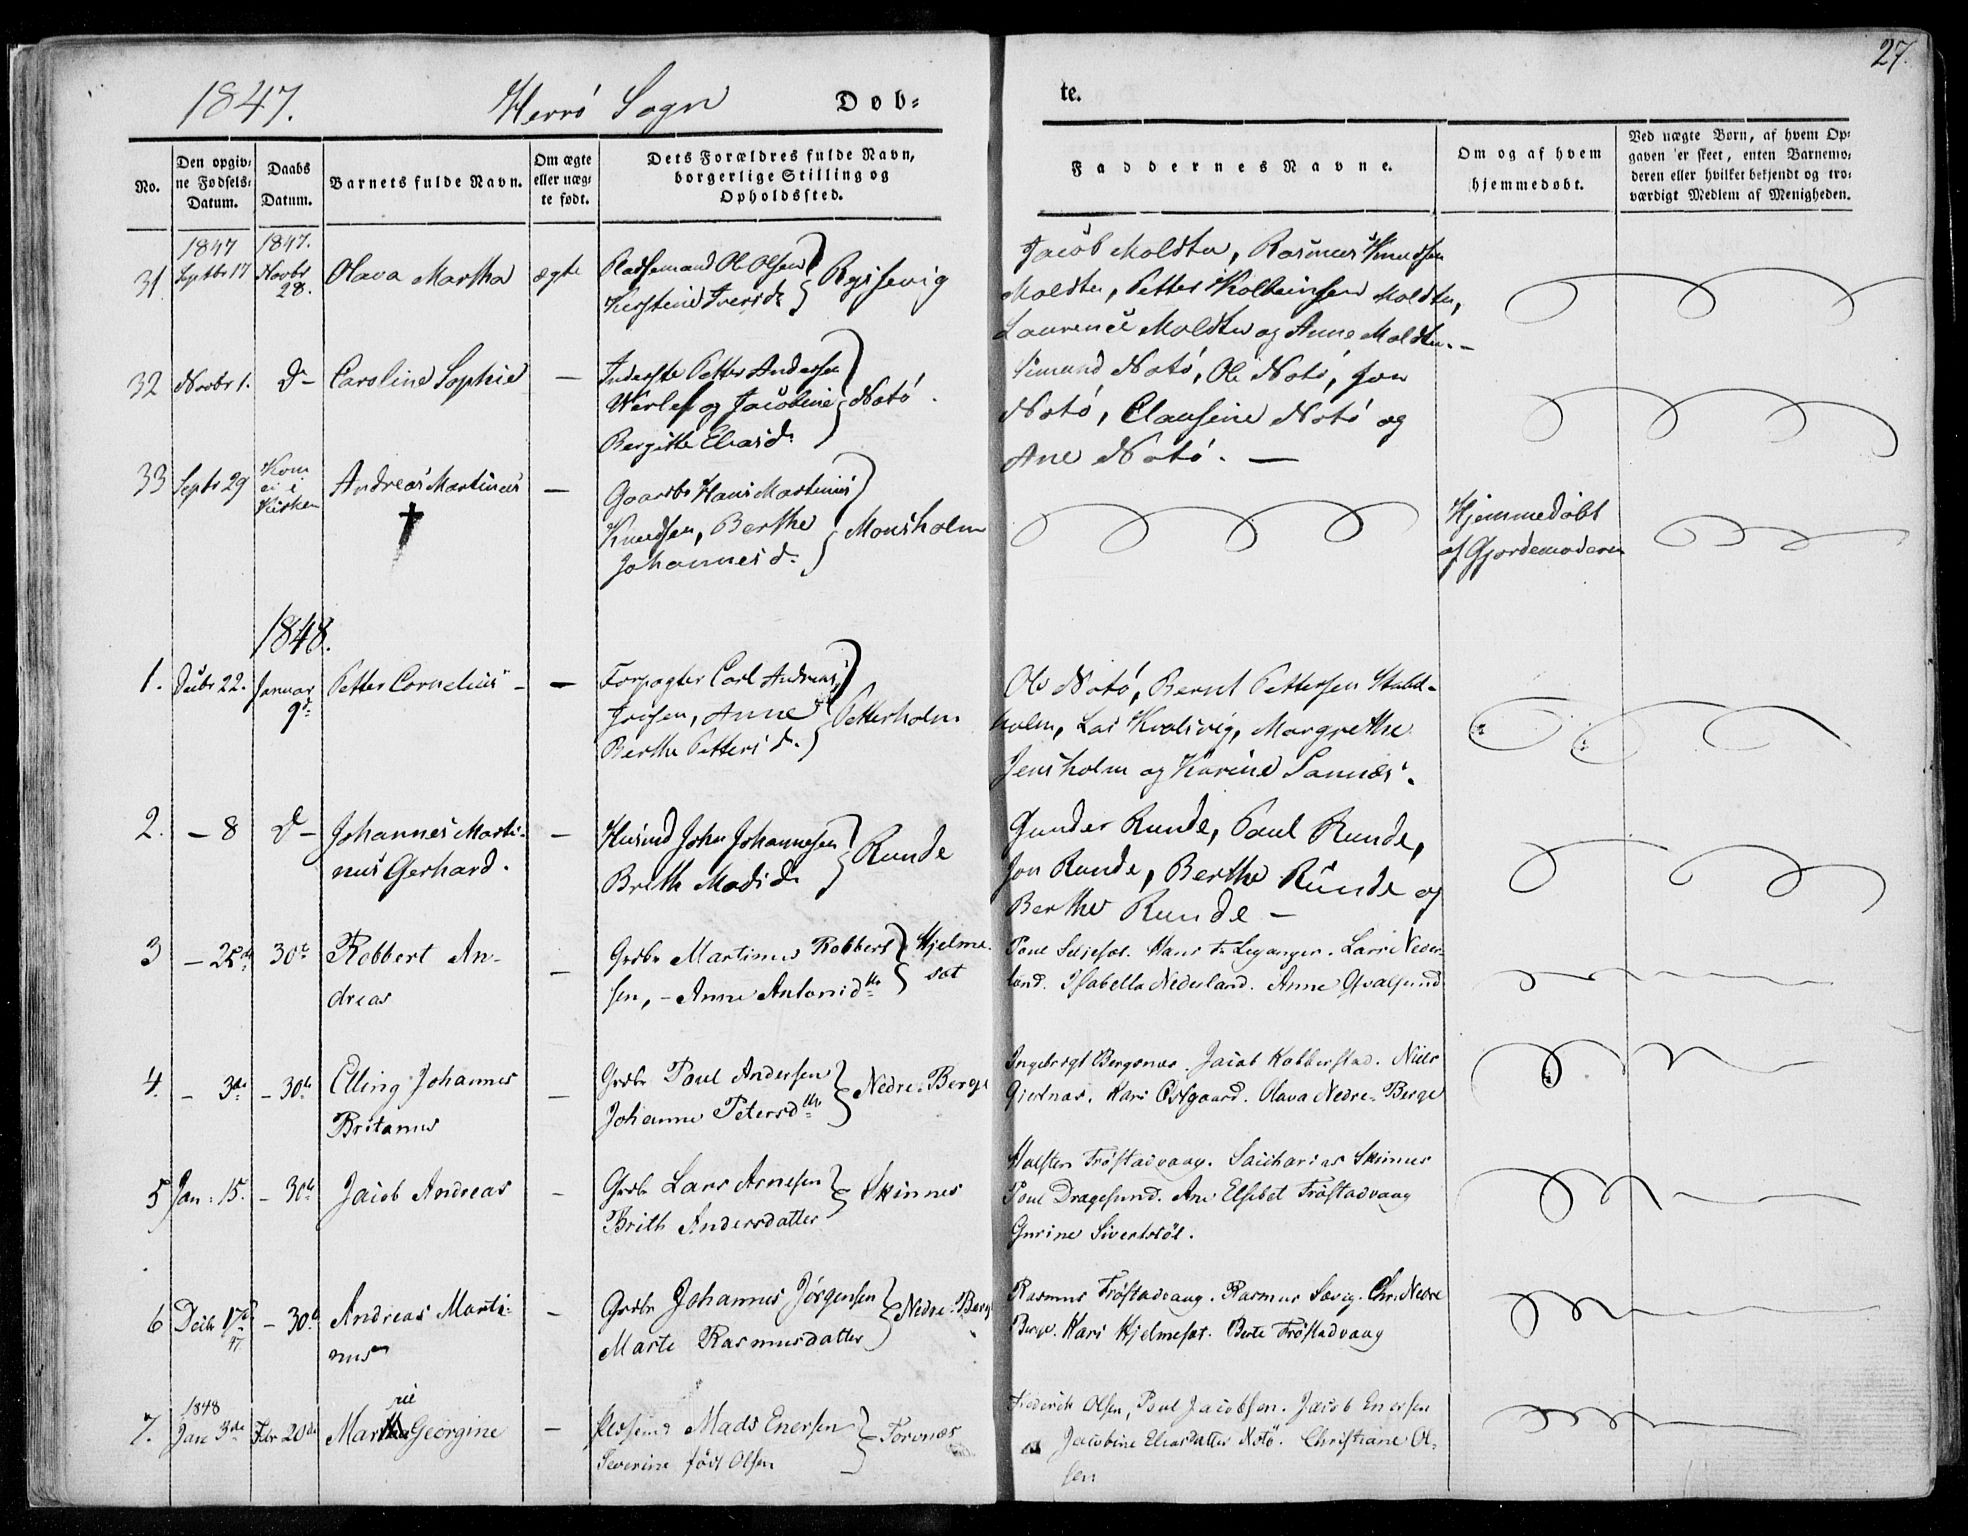 27.
1847. Herrö Sogn Døb=
te.
No.
Den opgiv=
ne Fødsels=
Datum.
Daabs
Datum.
Barnets fulde Navn.
Om ægte
eller uæg=
te født.
Dets Forældres fulde Navn,
borgerlige Stilling og
Opholdssted.
Faddernes Navne.
Om og af hvem
hjemmedøbt.
Ved uægte Børn, af hvem Op=
gaven er skeet, enten Barnemo=
deren eller hvilket bekjendt og tro=
værdigt Medlem af Menigheden.
1847 1847.
31 Septbr 17 Novbr 28. Olava Martha ægte
Pladsemand Ole Olsen
Kirstine Iversd.
Jacob Moldtu, Rasmus Knudsen
Moldtu, Petter Moldtu,
Laurence Moldtu og Anne Moldtu. –
32 Novbr 1. d– Caroline Sophie –
Inderste Petter Andersen
og Jacobine Notö.
Bergitte Eliasd.
Simund Notö, Ole Notö, Jon
Notö, Clausine Notö og
Ane Notö. –
33 Septbr 29 Kom ei i Kirken Andreas Martinus –
Gaardbr Hans Martinus
Knudsen, Berthe Monsholm
Johannesd.
Hjemmedöbt
af Gjordemoderen
1848.
1. Decbr 22. Januar 9de Petter Cornelius – –
Forpagter Carl Andreas
Anne Petterholm
Berthe Pettersd.
Ole Notö, Bernt Pettersen
holm, Lars Kvalsvig, Margrethe
Jensholm og Karine
2. – 8 d– Johannes Marti-
nus Gerhard. –
Husmd John Johannesen Runde
Brith Madsd.
Gunder Runde, Paul Runde,
Jon Runde, Berthe Runde og
Berthe Runde –
3 – 28de 30te Robbert An-
dreas –
Grdbr Martinus Robbert Hjelme-
sen, – Anne Antonidtr sæt
Poul Seljeset. Hans Leganger. Lars Neder-
land. Isabella Nederland. Anne Qvalsund
4. – 3de – 30te Elling Johannes
Britanus –
Grdbr Poul Andersen Nedre-Berge
Johanne Petersdtr
Ingebrigt Bergsnæs. Jacob Kobberstad. Niels
Gjerdnæs. Kari Östgaard. Olava Nedre-Berge
5 Jan: 15. – 30te Jacob Andreas –
Grdbr Lars Arnesen Skinnes
Brith Andersdatter
Holsten Fröstadvaag. Sacharias Skinnes
Poul Dragesund. Ane Elsebet Fröstadvaag
Gurine Sivertstöl.
6 Decbr 17de 47 – 30te Andreas Marti-
nus –
Grdbr Johannes Jörgensen Nedre-Berge
Marte Rasmusdatter
Rasmus Fröstadvaag. Rasmus Sævig. Chr. Nedre
Berge. Kari Hjelmeset. Berte Fröstadvaag
1848 rie
7. Jan 3de Febr 20de Martha Georgine –
Mads Enersen Torvnæs
Severine född Olsen
Frederich Olsen, Poul Jacobsen. Jacob Enersen
Jacobine Eliasdatter Notö. Christiane Ol-
sen